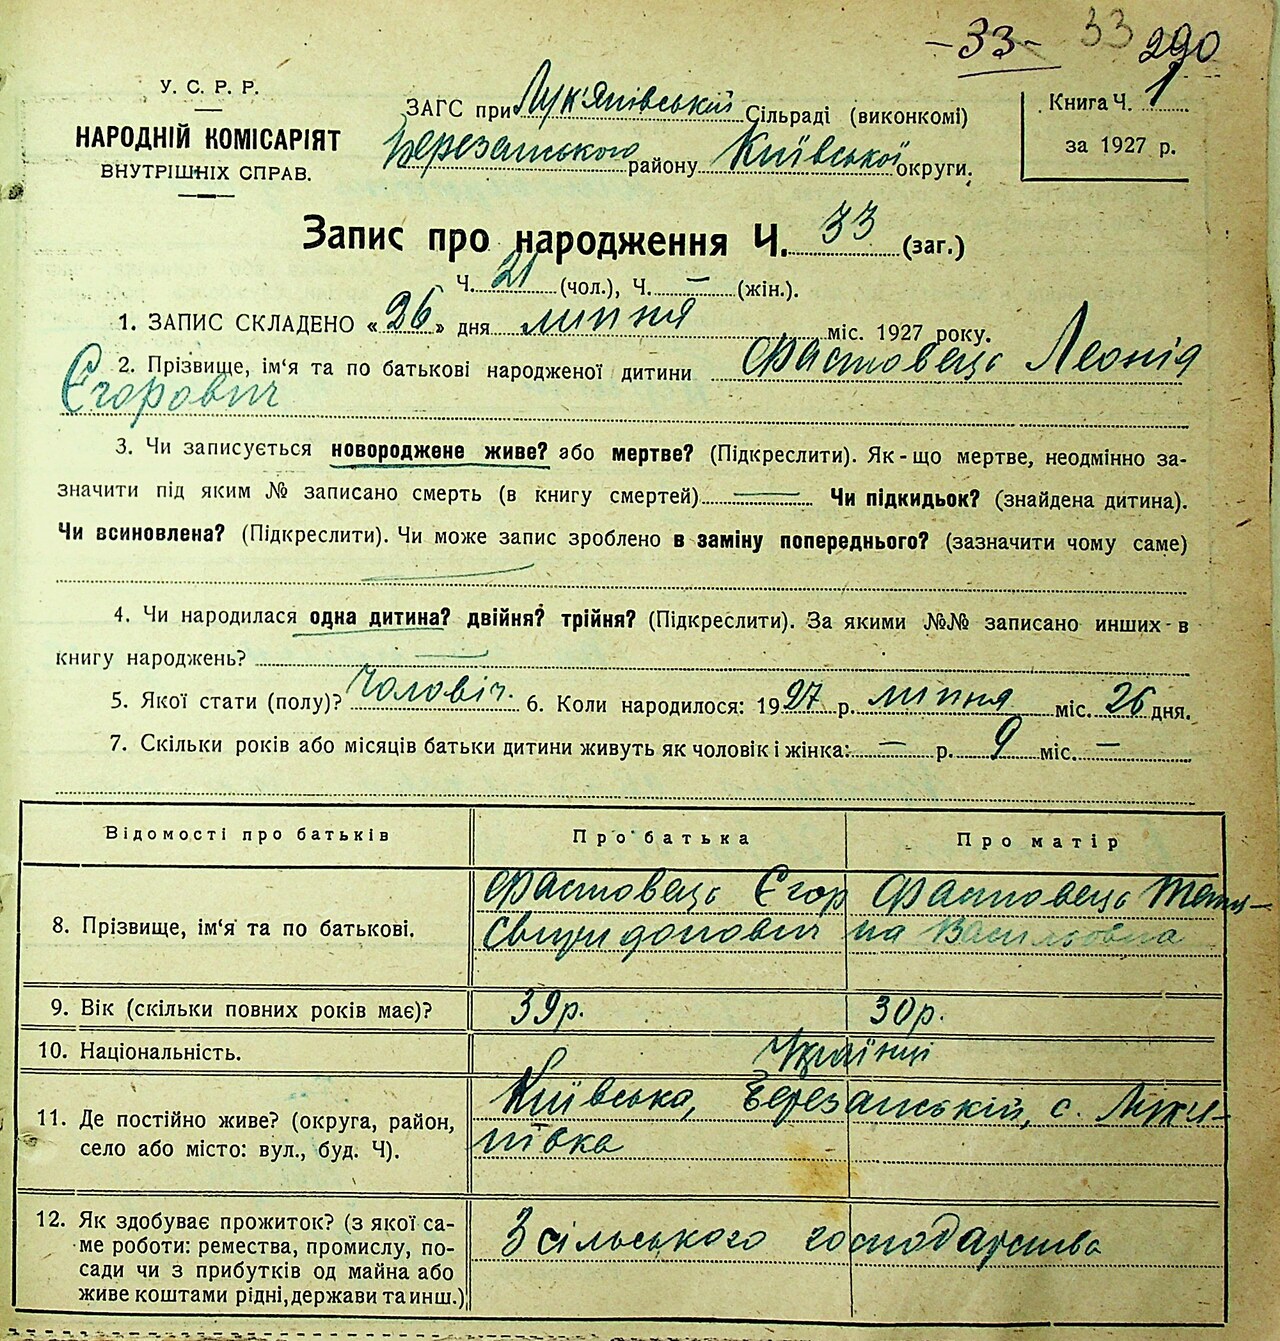 -33- 33 290
У. С. Р. Р.
НАРОДНІЙ КОМІСАРІЯТ
ВНУТРІШНІХ СПРАВ.
ЗАГС при Лук'янівській Сільраді (виконкомі)
Березанського району Київської округи.
Книга Ч. 1
за 1927 р.
Запис про народження Ч. 33 (заг.)
Ч. 21 (чол.), Ч. — (жін.).
1. ЗАПИС СКЛАДЕНО «26» дня липня міс. 1927 року.
2. Прізвище, ім'я та по батькові народженої дитини Фастовець Леонід
Єгорович
3. Чи записується новороджене живе? або мертве? (Підкреслити). Як-що мертве, неодмінно за-
значити під яким № записано смерть (в книгу смертей) — Чи підкидьок? (знайдена дитина).
Чи всиновлена? (Підкреслити). Чи може запис зроблено в заміну попереднього? (зазначити чому саме)
—
4. Чи народилася одна дитина? двійня? трійня? (Підкреслити). За якими №№ записано инших в
книгу народжень? —
5. Якої стати (полу)? чоловіч. 6. Коли народилося: 1927 р. липня міс. 26 дня.
7. Скільки років або місяців батьки дитини живуть як чоловік і жінка: — р. 9 міс. —
Відомості про батьків Про батька Про матір
8. Прізвище, ім'я та по батькові. Фастовець Єгор Фастовець Тетя-
Свиридонович на Васильовна
9. Вік (скільки повних років має)? 39р. 30р.
10. Національність. Українці
11. Де постійно живе? (округа, район, Київська, Березанській, с. Лук'я-
село або місто: вул., буд. Ч). нівка
12. Як здобуває прожиток? (з якої са- З сільського господарства
ме роботи: ремества, промислу, по-
сади чи з прибутків од майна або
живе коштами рідні, держави та инш.)